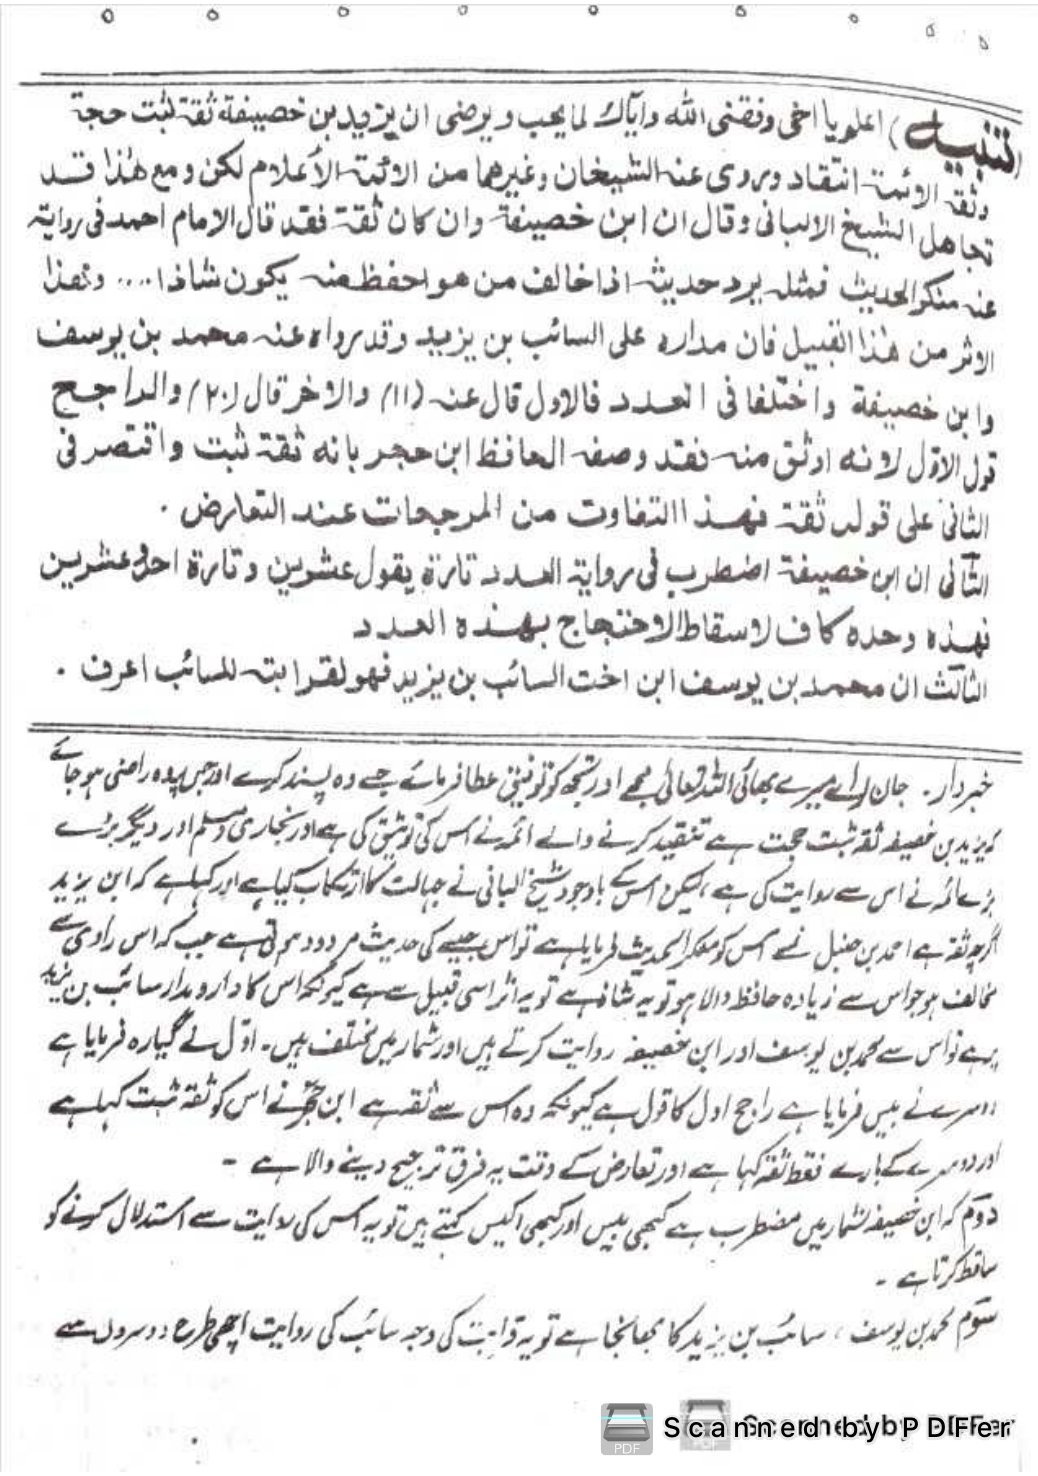 (تنبيه) اعلم يا اخى وفقنى الله واياك لما يحب ويرضى ان يزيد بن خصيفة ثقة ثبت حجة
وثقه الائمة انتقاد وروى عنه الشيخان وغيرهما من الائمة الأعلام لكن ومع هذا قد
تجاهل الشيخ الالبانى وقال ان ابن خصيفة وان كان ثقة فقد قال الامام احمد فى رواية
عنه منكر الحديث فمثله يرد حديثه اذا خالف من هو احفظ منه يكون شاذا .... وهذا
الاثر من هذا القبيل فان مداره على السائب بن يزيد وقد رواه عنه محمد بن يوسف
وابن خصيفة واختلفا فى العدد فالاول قال عنه (١١) والاخر قال (٢٠) والراجح
قول الاول لانه اوثق منه فقد وصفه الحافظ ابن حجر بانه ثقة ثبت واقتصر فى
الثانى على قوله ثقة فهذا التفاوت من المرجحات عند التعارض .
الثانى ان ابن خصيفة اضطرب فى رواية العدد تارة يقول عشرين وتارة احد وعشرين
فهذه وحده كاف لاسقاط الاحتجاج بهذه العدد
الثالث ان محمد بن يوسف ابن اخت السائب بن يزيد فهو لقرابته للسائب اعرف .
خبردار . جان لے اے میرے بھائی اللہ تعالیٰ مجھے اور تجھ کو توفیق عطا فرمائے جسے وہ پسند کرے اور جس پہ وہ راضی ہو جائے
کہ یزید بن خصیفہ ثقہ ثبت حجت ہے تنقید کرنے والے ائمہ نے اس کی توثیق کی ہے اور بخاری و مسلم اور دیگر بڑے
بڑے ائمہ نے اس سے روایت کی ہے ، لیکن اس کے باوجود شیخ البانی نے جہالت کا ارتکاب کیا ہے اور کہا ہے کہ ابن یزید
اگرچہ ثقہ ہے احمد بن حنبل نے اس کو منکر الحدیث فرمایا ہے تو اس جیسے کی حدیث مردود ہوتی ہے جب کہ اس راوی سے
مخالف ہو جو اس سے زیادہ حافظ والا ہو تو یہ شاذ ہے تو یہ اثر اسی قبیل سے ہے کیونکہ اس کا دارومدار سائب بن یزید
پر ہے تو اس سے محمد بن یوسف اور ابن خصیفہ روایت کرتے ہیں اور شمار میں مختلف ہیں۔ اوّل نے گیارہ فرمایا ہے
دوسرے نے بیس فرمایا ہے راجح اول کا قول ہے کیونکہ وہ اس سے ثقہ ہے ابن حجرؒ نے اس کو ثقہ ثبت کہا ہے
اور دوسرے کے بارے فقط ثقہ کہا ہے اور تعارض کے وقت یہ فرق ترجیح دینے والا ہے -
دوم کہ ابن خصیفہ شمار میں مضطرب ہے کبھی بیس اور کبھی اکیس کہتے ہیں تو یہ اس کی روایت سے استدلال کرنے کو
ساقط کرتا ہے -
سوم محمد بن یوسف ، سائب بن یزید کا بھانجا ہے تو یہ قرابت کی وجہ سائب کی روایت اچھی طرح دوسروں سے
Scanned by PDFer